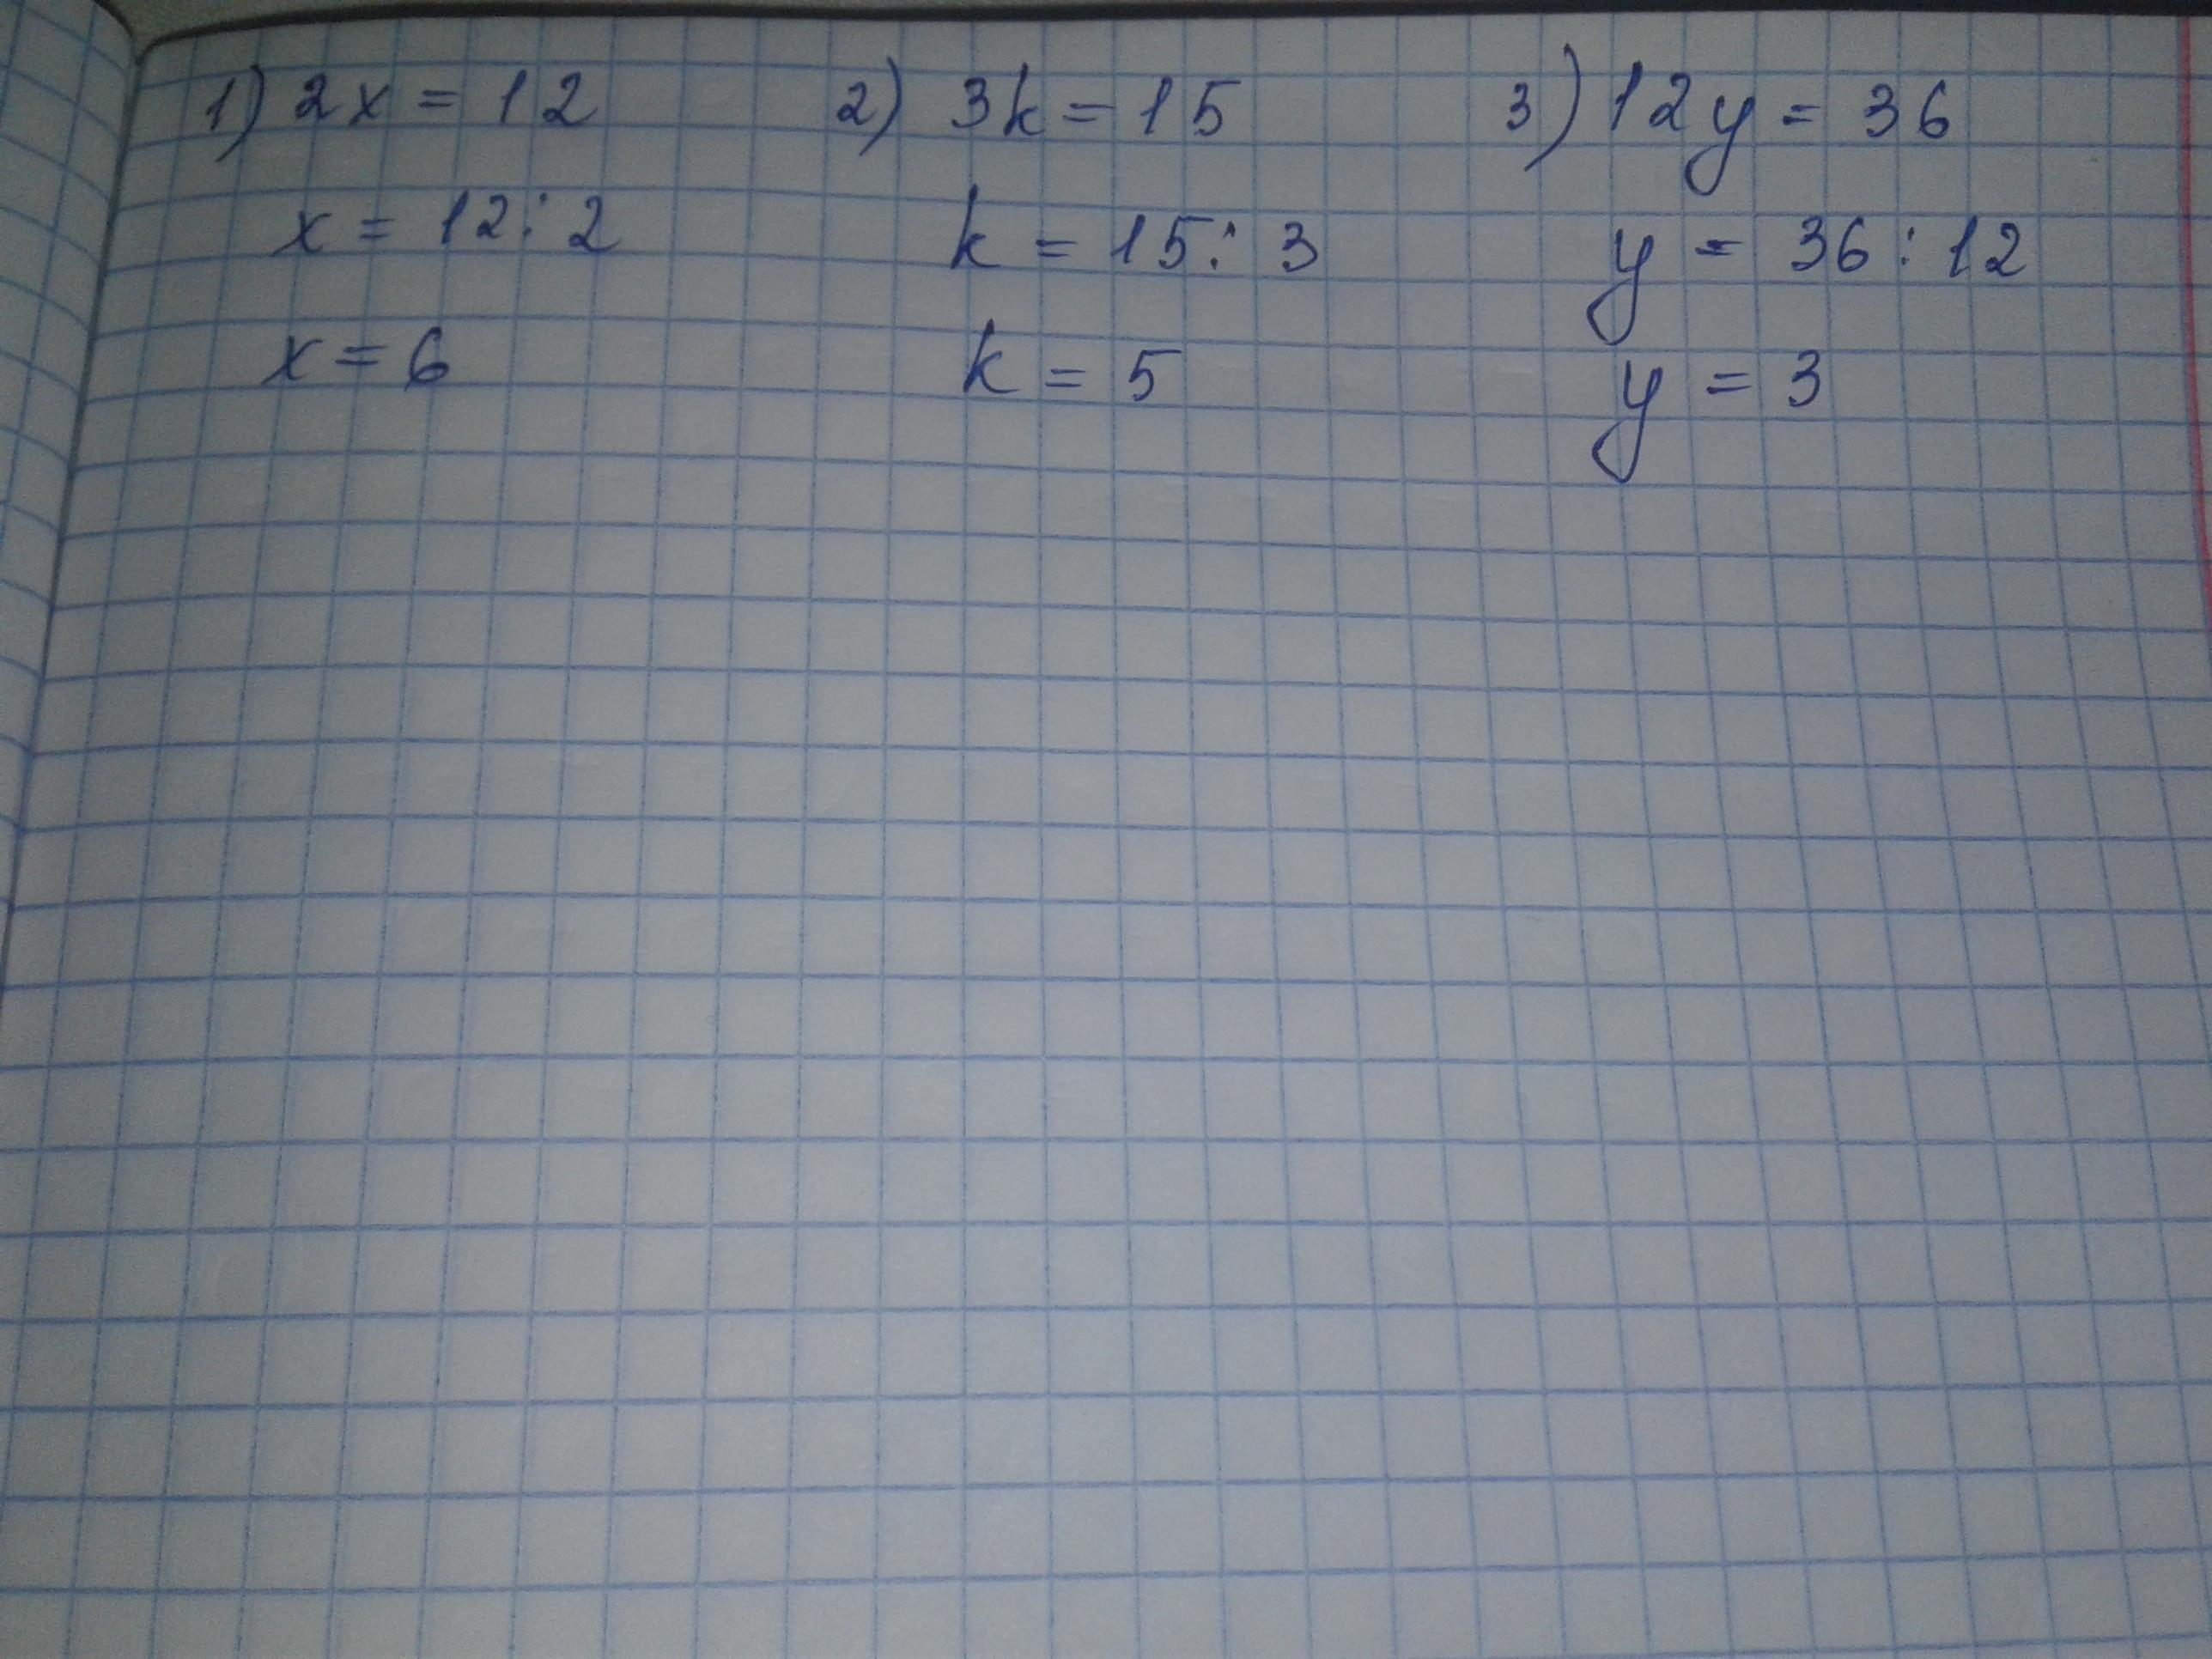 1) 2x = 12
x = 12 : 2
x = 6
2) 3k = 15
k = 15 : 3
k = 5
3) 12y = 36
y = 36 : 12
y = 3